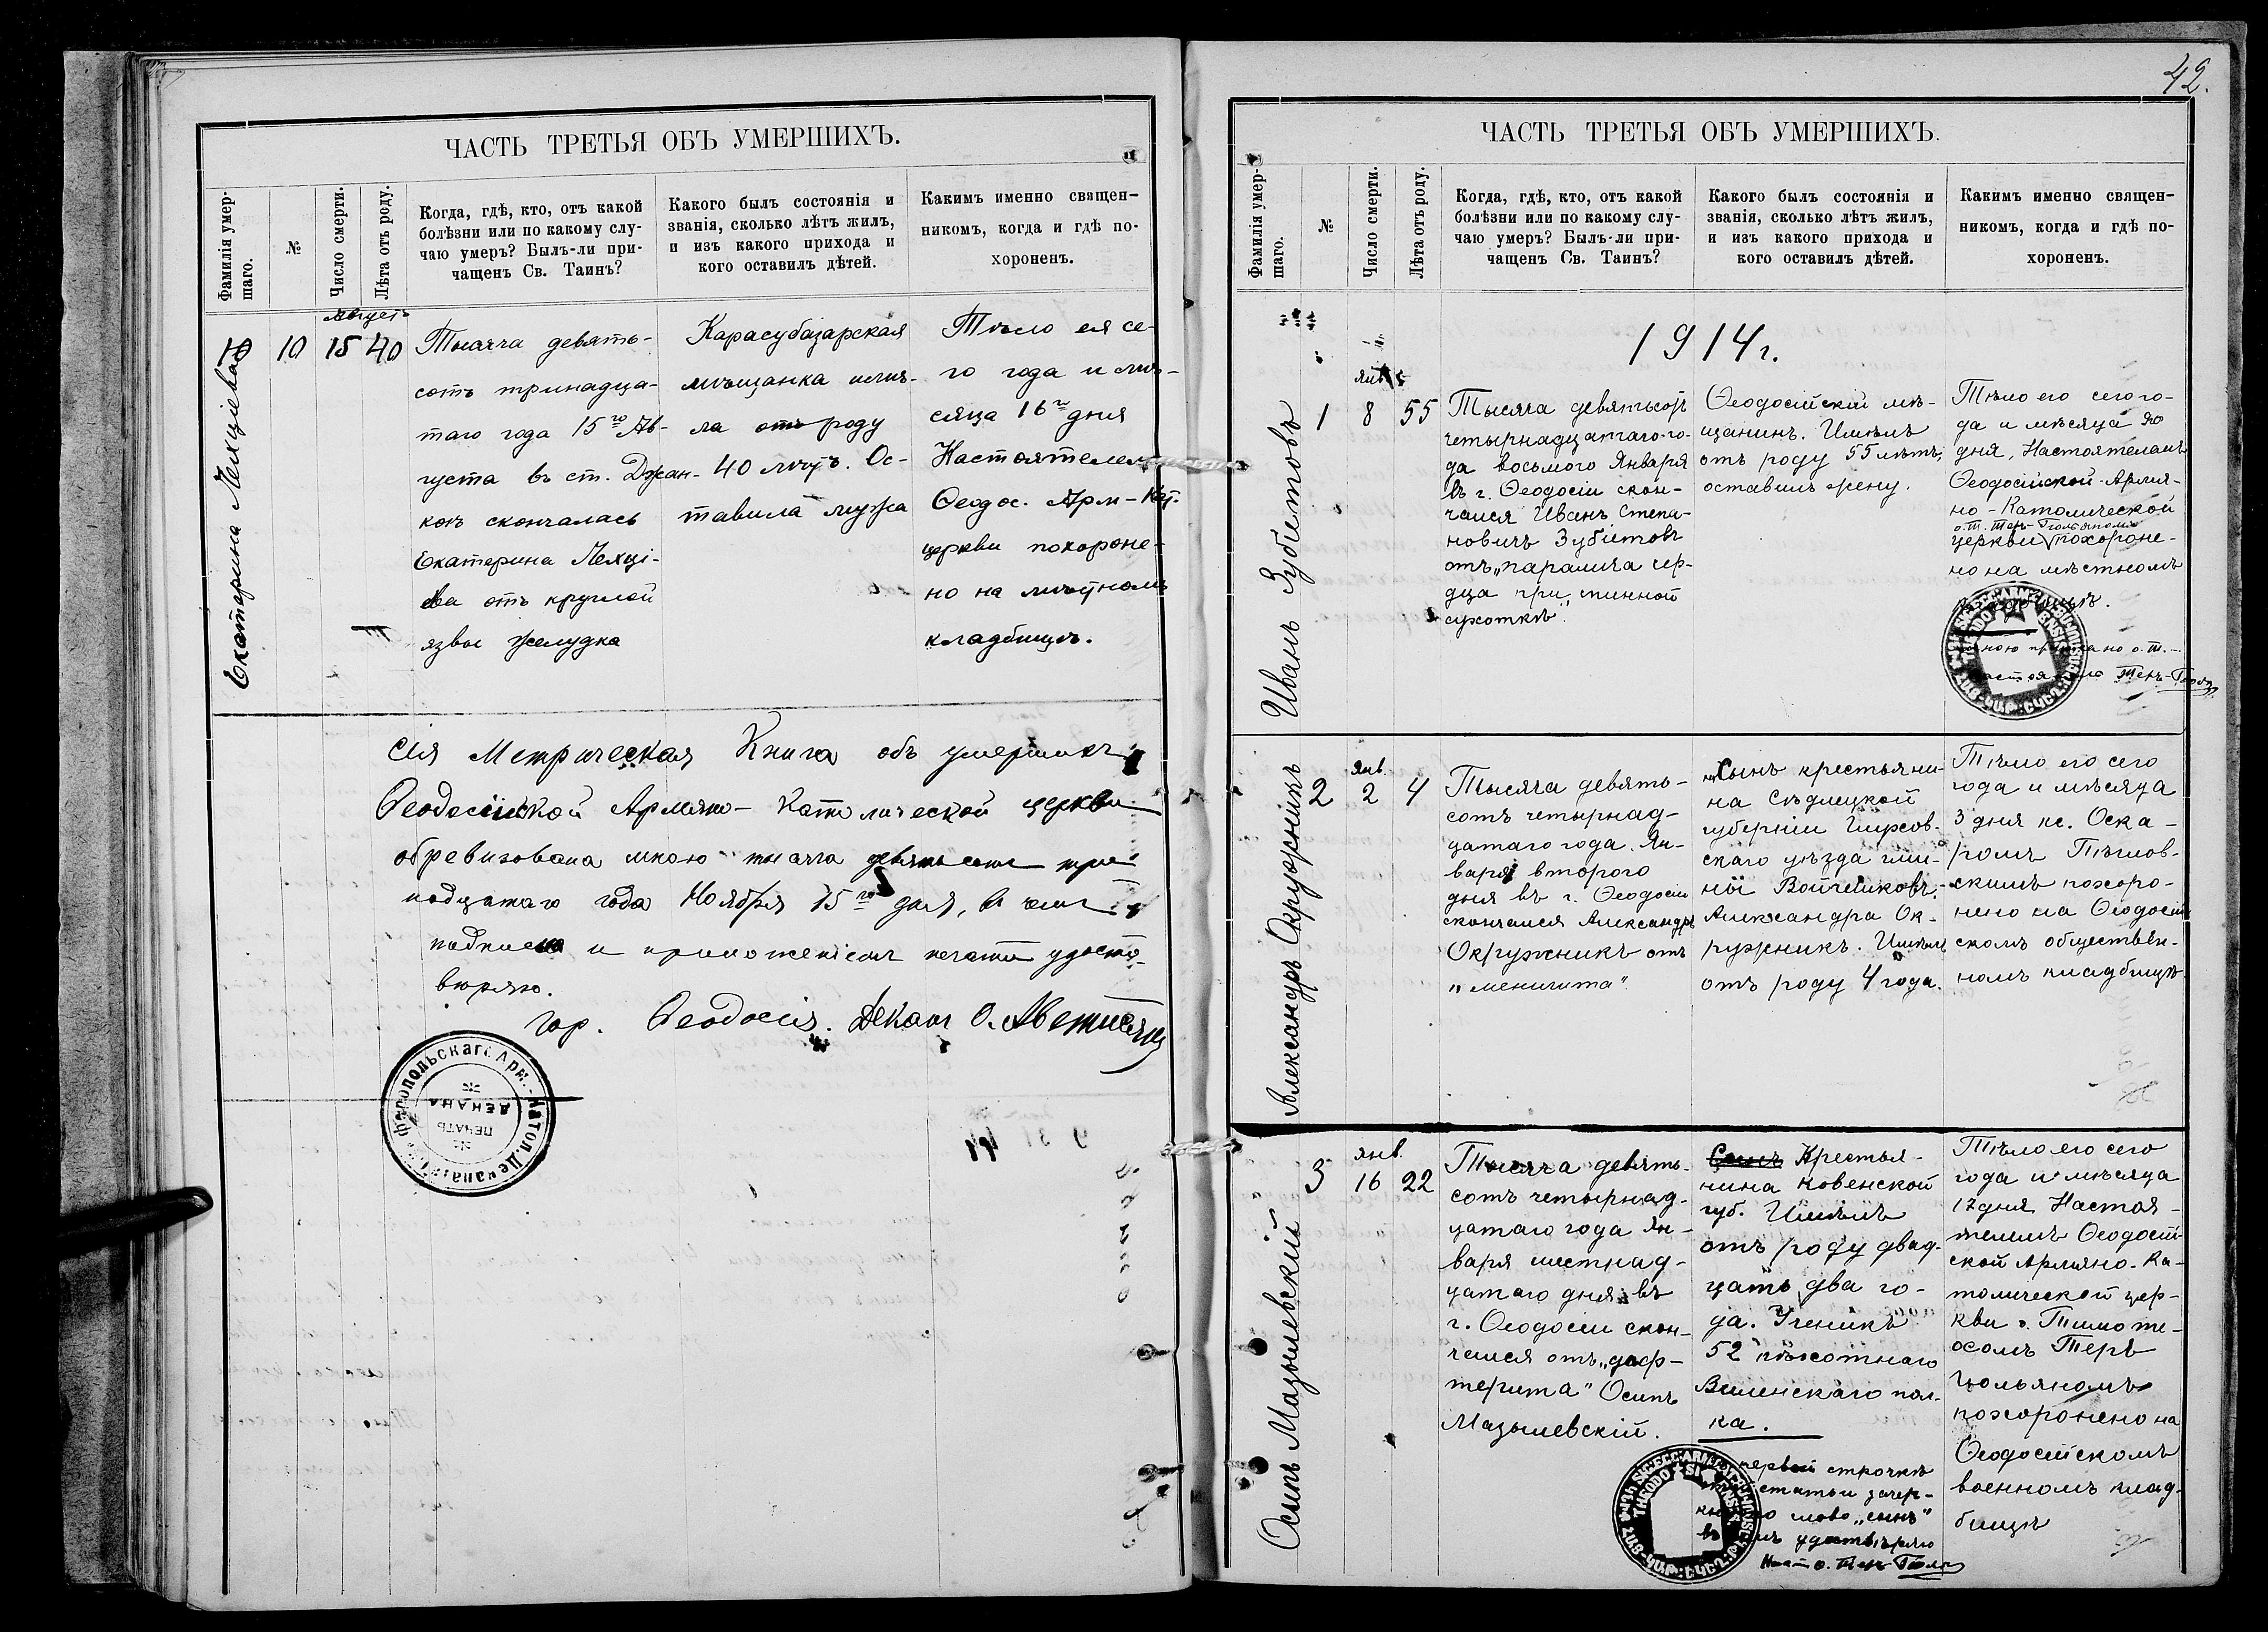 42.
ЧАСТЬ ТРЕТЬЯ ОБЪ УМЕРШИХЪ.
Фамилія умер-
шаго.
№
Число смерти.
Лѣта отъ роду.
Когда, гдѣ, кто, отъ какой
болѣзни или по какому слу-
чаю умеръ? Былъ-ли при-
чащенъ Св. Таинъ?
Какого былъ состоянія и
званія, сколько лѣтъ жилъ,
и изъ какого прихода и
кого оставилъ дѣтей.
Какимъ именно священ-
никомъ, когда и гдѣ по-
хороненъ.
Екатерина
10
10
Августъ
15
40
Тысяча девять-
сотъ тринадца-
таго года 15го Ав-
густа въ ст. Джан-
кой скончалась
Екатерина
отъ круглой
язвы желудка
Карасубазарская
мѣщанка имѣ-
ла отъ роду
40 лѣтъ. Ос-
тавила мужа
Тѣло ея се-
го года и мѣ-
сяца 16го дня
Настоятелемъ
Ѳеодос. Арм-Кат.
церкви похороне-
но на мѣстномъ
кладбищѣ.
Сія Метрическая Книга объ умершихъ
Ѳеодосійской Армяно-Католической церкви
обревизована мною тысяча девятьсотъ три-
надцатаго года Ноября 15го дня, въ чемъ
подписью и приложеніемъ печати удосто-
вѣряю.
гор. Ѳеодосія. Деканъ О. Аветисянц
Симферопольскаго Арм.-Катол. Деканата
ПЕЧАТЬ
ДЕКАНА
ЧАСТЬ ТРЕТЬЯ ОБЪ УМЕРШИХЪ.
Фамилія умер-
шаго.
№
Число смерти.
Лѣта отъ роду.
Когда, гдѣ, кто, отъ какой
болѣзни или по какому слу-
чаю умеръ? Былъ-ли при-
чащенъ Св. Таинъ?
Какого былъ состоянія и
званія, сколько лѣтъ жилъ,
и изъ какого прихода и
кого оставилъ дѣтей.
Какимъ именно священ-
никомъ, когда и гдѣ по-
хороненъ.
1914 г.
Иванъ Зубіетовъ
1
Янв.
8
55
Тысяча девятьсотъ
четырнадцатаго го-
да восьмого Января
въ г. Ѳеодосіи скон-
чался Иванъ Степа-
новичъ Зубіетовъ
отъ „паралича сер-
дца при спинной
сухоткѣ".
Ѳеодосійскій мѣ-
щанинъ. Имѣлъ
отъ роду 55 лѣтъ,
оставилъ жену.
Тѣло его сего го-
да и мѣсяца 10
дня, Настоятелемъ
Ѳеодосійской Армя-
но-Католической
о. Т. Теръ-Гюльяномъ
церкви похороне-
но на мѣстномъ
кладбищѣ.
Александръ Окружникъ
2
Янв.
2
4
Тысяча девять-
сотъ четырнад-
цатаго года Ян-
варя второго
дня въ г. Ѳеодосіи
скончался Александръ
Окружникъ отъ
„менингита"
Сынъ крестьяни-
на Сѣдлецкой
губерніи
скаго уѣзда гми-
ны
Александра Ок-
ружникъ. Имѣлъ
отъ роду 4 года.
Тѣло его сего
года и мѣсяца
3 дня кс. Оска-
ромъ
скимъ похоро-
нено на Ѳеодосій-
скомъ обществен-
номъ кладбищѣ.
Осипъ Мазылевскій
3
янв.
16
22
Тысяча девять-
сотъ четырнад-
цатаго года Ян-
варя шестнад-
цатаго дня въ
г. Ѳеодосіи скон-
чался отъ „диф-
терита" Осипъ
Мазылевскій.
Сынъ Крестья-
нина Ковенской
губ. Имѣлъ
отъ роду двад-
цать два го-
да. Ученикъ
52 пѣхотнаго
Виленскаго пол-
ка.
первой строчкѣ
статьи зачер-
кнуто слово „сынъ"
въ чемъ удостовѣряю
Наст. о. Теръ-Гюл
Тѣло его сего
года и мѣсяца
17 дня Настоя-
телемъ Ѳеодосій-
ской Армяно-Ка-
толической цер-
кви о. Тимоте-
осомъ Теръ
Гюльяномъ
похоронено на
Ѳеодосійскомъ
военномъ клад-
бищѣ